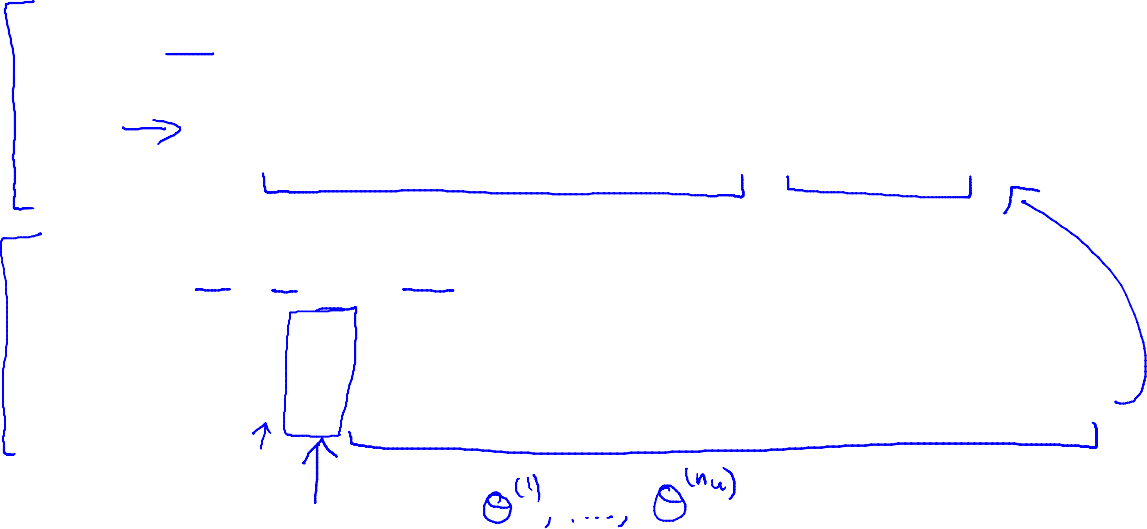 θ⁽¹⁾, ...., θ⁽ⁿᵘ⁾